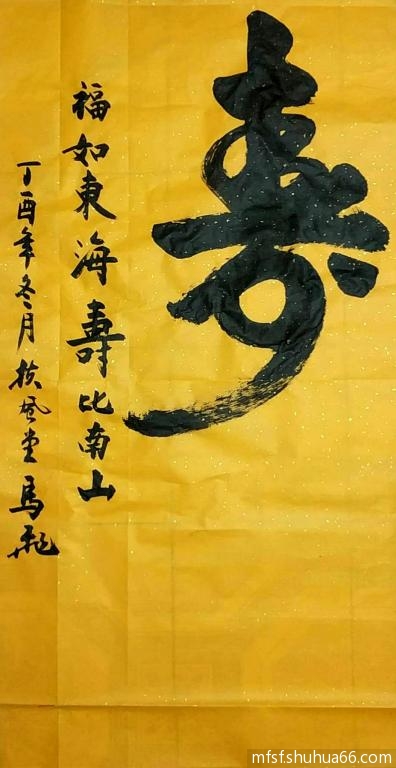 寿
福如東海壽比南山
丁酉年冬月扶风堂馬飛
mfsf.shuhua66.com